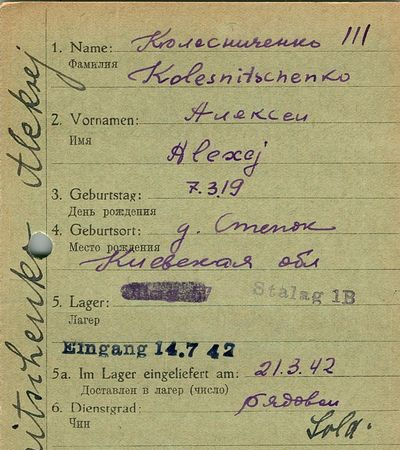 1. Name: Колесниченко III
Фамилия
Kolesnitschenko
2. Vornamen: Алексей
Имя
Alexej
3. Geburtstag: 7.3.19
День рождения
4. Geburtsort: д. Степок
Место рождения
Киевская обл
5. Lager: Stalag 1B
Лагер
Eingang 14.7 42
5a. Im Lager eingeliefert am: 21.3.42
Доставлен в лагер (число)
6. Dienstgrad: рядовой
Чин
Sold.
itschenko Aleksej